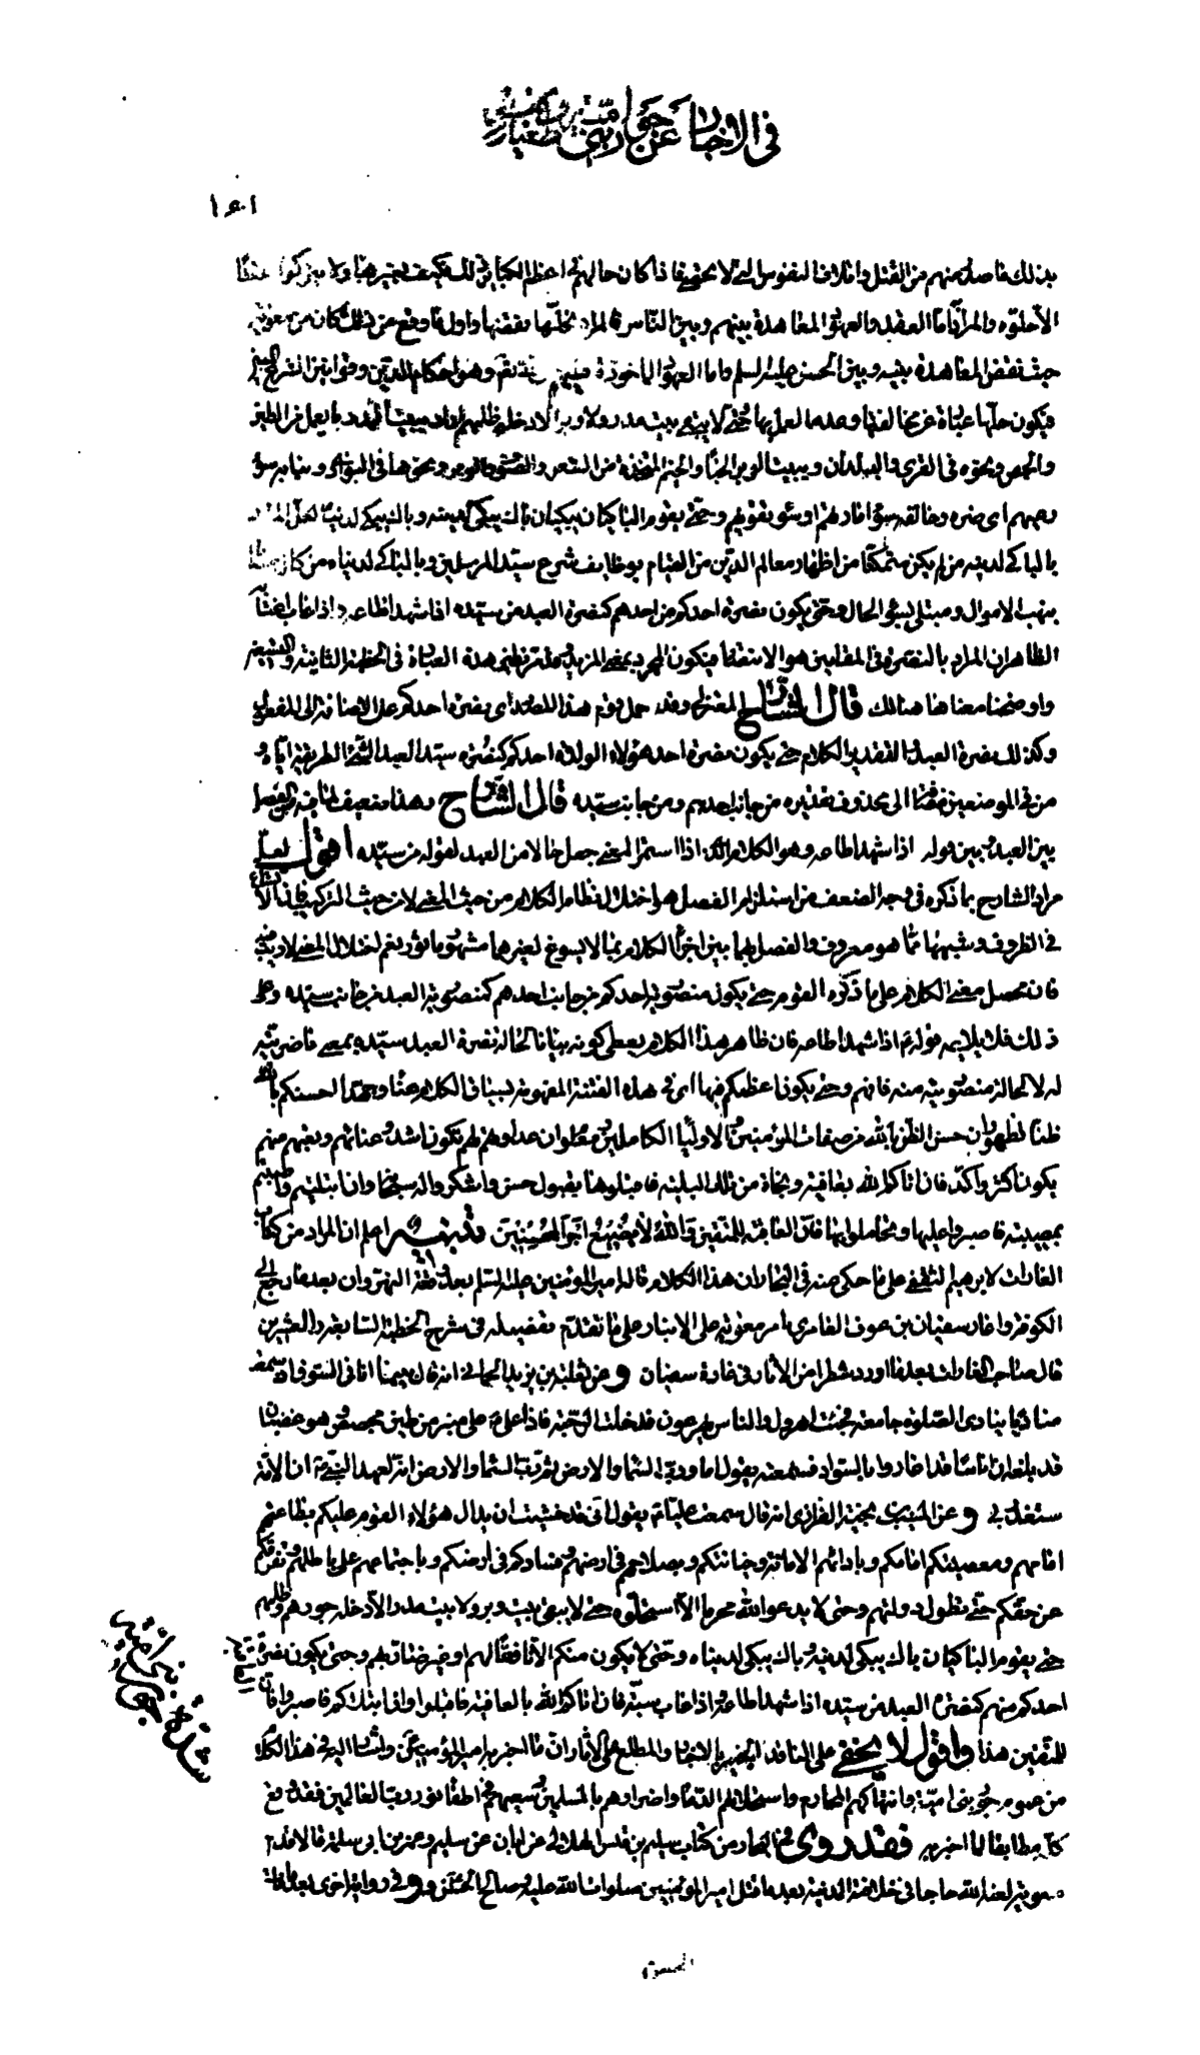 في الاخبار عن جور بني امية
بذلك ما صدر منهم من القتل واتلاف النفوس التي لا تحصى فاذا كان حالهم في اعظم الكباير ذلك فكيف بغيرها ولا يتركوا عقدا
الا حلوه والمراد اما العقد والعهود المعاهدة بينهم وبين الناس فالمراد بحلها نقضها واول ما وقع من ذلك كان من معوية
حيث نقض المعاهدة بينه وبين الحسن عليه السلم واما العهود الماخوذة وهو احكام الدين وقوانين الشرع المبين
فيكون حلها عبارة عن مخالفتها وعدم العمل بها حتى لا يبقى بيت مدر ولا وبر الا دخله ظلمهم اراد ببيت المدر ما يعمل من الطين
والجص ونحوه في القرى والبلدان وببيت الوبر الخباء والخيم المتخذة من الشعر والصوف والوبر ونحوها في البوادي ونبا به سوء
رعيهم اى ضره وخالفه سوء امارتهم او سوء تقويهم وحتى يقوم الباكيان يبكيان باك يبكى لدينه وباك يبكى لدنياه لعل المراد
بالباكى لدينه من لم يكن متمكنا من اظهار معالم الدين من القيام بوظايف شرع سيد المرسلين وبالباكى لدنياه من كان
بنهب الاموال ومبتلى بسوء الحال وحتى يكون نصرة احدكم من احدهم كنصرة العبد من سيده اذا شهد اطاعه واذا غاب اغتابه
الظاهر ان المراد بالنصرة في المقامين هو الانتصار فيكون المجرد بمعنى المزيد هذه العبارة في الخطبة الثانية والتسعين
واوضحنا معناها هنالك قال الشارح المعتزلي وقد حمل قوم هذا المصدر اى نصرة احدكم على الاضافة الى المفعول
وكذلك نصرة العبد والتقدير الكلام حتى يكون نصرة احد هؤلاء الولاة احدكم كنصرة سيد العبد السيئ الطريقة اياه و
من في الموضعين مضافة الى محذوف تقديره من جانب احدهم ومن جانب سيده قال الشارح وهذا ضعيف لما فيه من الفصل
بين العبد وبين قوله اذا شهد اطاعه وهو الكلام الذي اذا استمر المعنى جعل حالا من العبد لقوله من سيده اقول لعل
مراد الشارح بما ذكره في وجه الضعف من استلزام الفصل هو اختلال نظام الكلام من حيث المعنى لا من حيث التركيب
في الظروف وشبهها مما هو معروف والفصل بهما بين اجزاء الكلام بما لا يسوغ لغيرهما مشهور ماثور نعم اختلال المعنى لا ريب فيه
فان محصل معنى الكلام على ما ذكره القوم حتى يكون منصورية احدكم من جانب احدهم كمنصورية العبد من جانب سيده وعلى
ذلك فلا يلايمه قوله ع اذا شهد اطاعه فان ظاهر هذا الكلام يعطى كونه بيانا لحالة نصرة العبد سيده بمعنى ناصريته
له لا لحالة منصوريته منه فافهم وحتى يكون اعظمكم فيها اى في هذه الفتنة المفهومة بسياق الكلام عناء وجهدا احسنكم بالله
ظنا لظهور ان حسن الظن بالله من صفات المؤمنين والاولياء الكاملين ومعلوم ان عداوتهم لهم تكون اشد وعنائهم وتعبهم منهم
يكون اكثر واكد فان اتاكم الله بعافية ونجاة من تلك البلية فاقبلوها بقبول حسن واشكروا له سبحانه وان ابتليتم
بمصيبة فاصبروا عليها وتحاملوا بها فان العاقبة للمتقين والله لا يضيع اجر المحسنين تنبيه اعلم ان المراد من كتاب
الغارات لابراهيم الثقفي على ما حكى عنه في البحار ان هذا الكلام قاله امير المؤمنين عليه السلم بعد وقعة النهروان بعد ما رجع الى
الكوفة واغار سفيان بن عوف الغامدي بامر معوية على الانبار على ما تقدم تفصيله في شرح الخطبة السابعة والعشرين
قال صاحب الغارات بعد ما اورد شطرا من الاثار في غارة سفيان وعن ثعلبة بن يزيد الحماني انه قال بينما انا في السوق اذ سمعت
مناديا ينادى الصلوة جامعة فجئت اهرول والناس يهرعون فدخلت الرحبة فاذا على ع على منبر من طين مجصص وهو غضبان
قد بلغه ان اناسا قد اغاروا بالسواد فسمعته يقول اما ورب السماء والارض ثم رب السماء والارض انه لعهد النبي ص ان الامة
ستغدر بي وعن المسيب بن نجبة الفزاري انه قال سمعت عليا ع يقول انى قد خشيت ان يدال هؤلاء القوم عليكم بطاعتهم
امامهم ومعصيتكم امامكم وبادائهم الامانة وخيانتكم وبصلاحهم في ارضهم وفسادكم في ارضكم وباجتماعهم على باطلهم وتفرقكم
عن حقكم حتى تطول دولتهم وحتى لا يدعو الله محرما الا استحلوه حتى لا يبقى بيت وبر ولا بيت مدر الا دخله جورهم وظلمهم
حتى يقوم الباكيان باك يبكى لدينه وباك يبكى لدنياه وحتى لا يكون منكم الا نافعا لهم او غير ضار بهم وحتى يكون نصرة
احدكم منهم كنصرة العبد من سيده اذا شهد اطاعه واذا غاب سبه فان اتاكم الله بالعافية فاقبلوا وان ابتلاكم فاصبروا فان
للمتقين هذا واقول لا يخفى على الناقد البصير بالاخبار والمطلع على الاثار ان ما اخبر به امير المؤمنين واشار اليه في هذا الكلام
من عموم جور بني امية وانتهاكهم المحارم واستحلالهم الدماء واضرارهم بالمسلمين وسعيهم في اطفاء نور رب العالمين فقد وقع
كله مطابقا لما اخبر به فقد روى في البحار من كتاب سليم بن قيس الهلالي عن ابان عن سليم وعمر بن ابي سلمة قالا قدم
معوية لعنه الله حاجا في خلافته المدينة بعد ما قتل امير المؤمنين صلوات الله عليه وصالح الحسن و وفي رواية اخرى بعد ما مات
الحسن
شدة بني امية